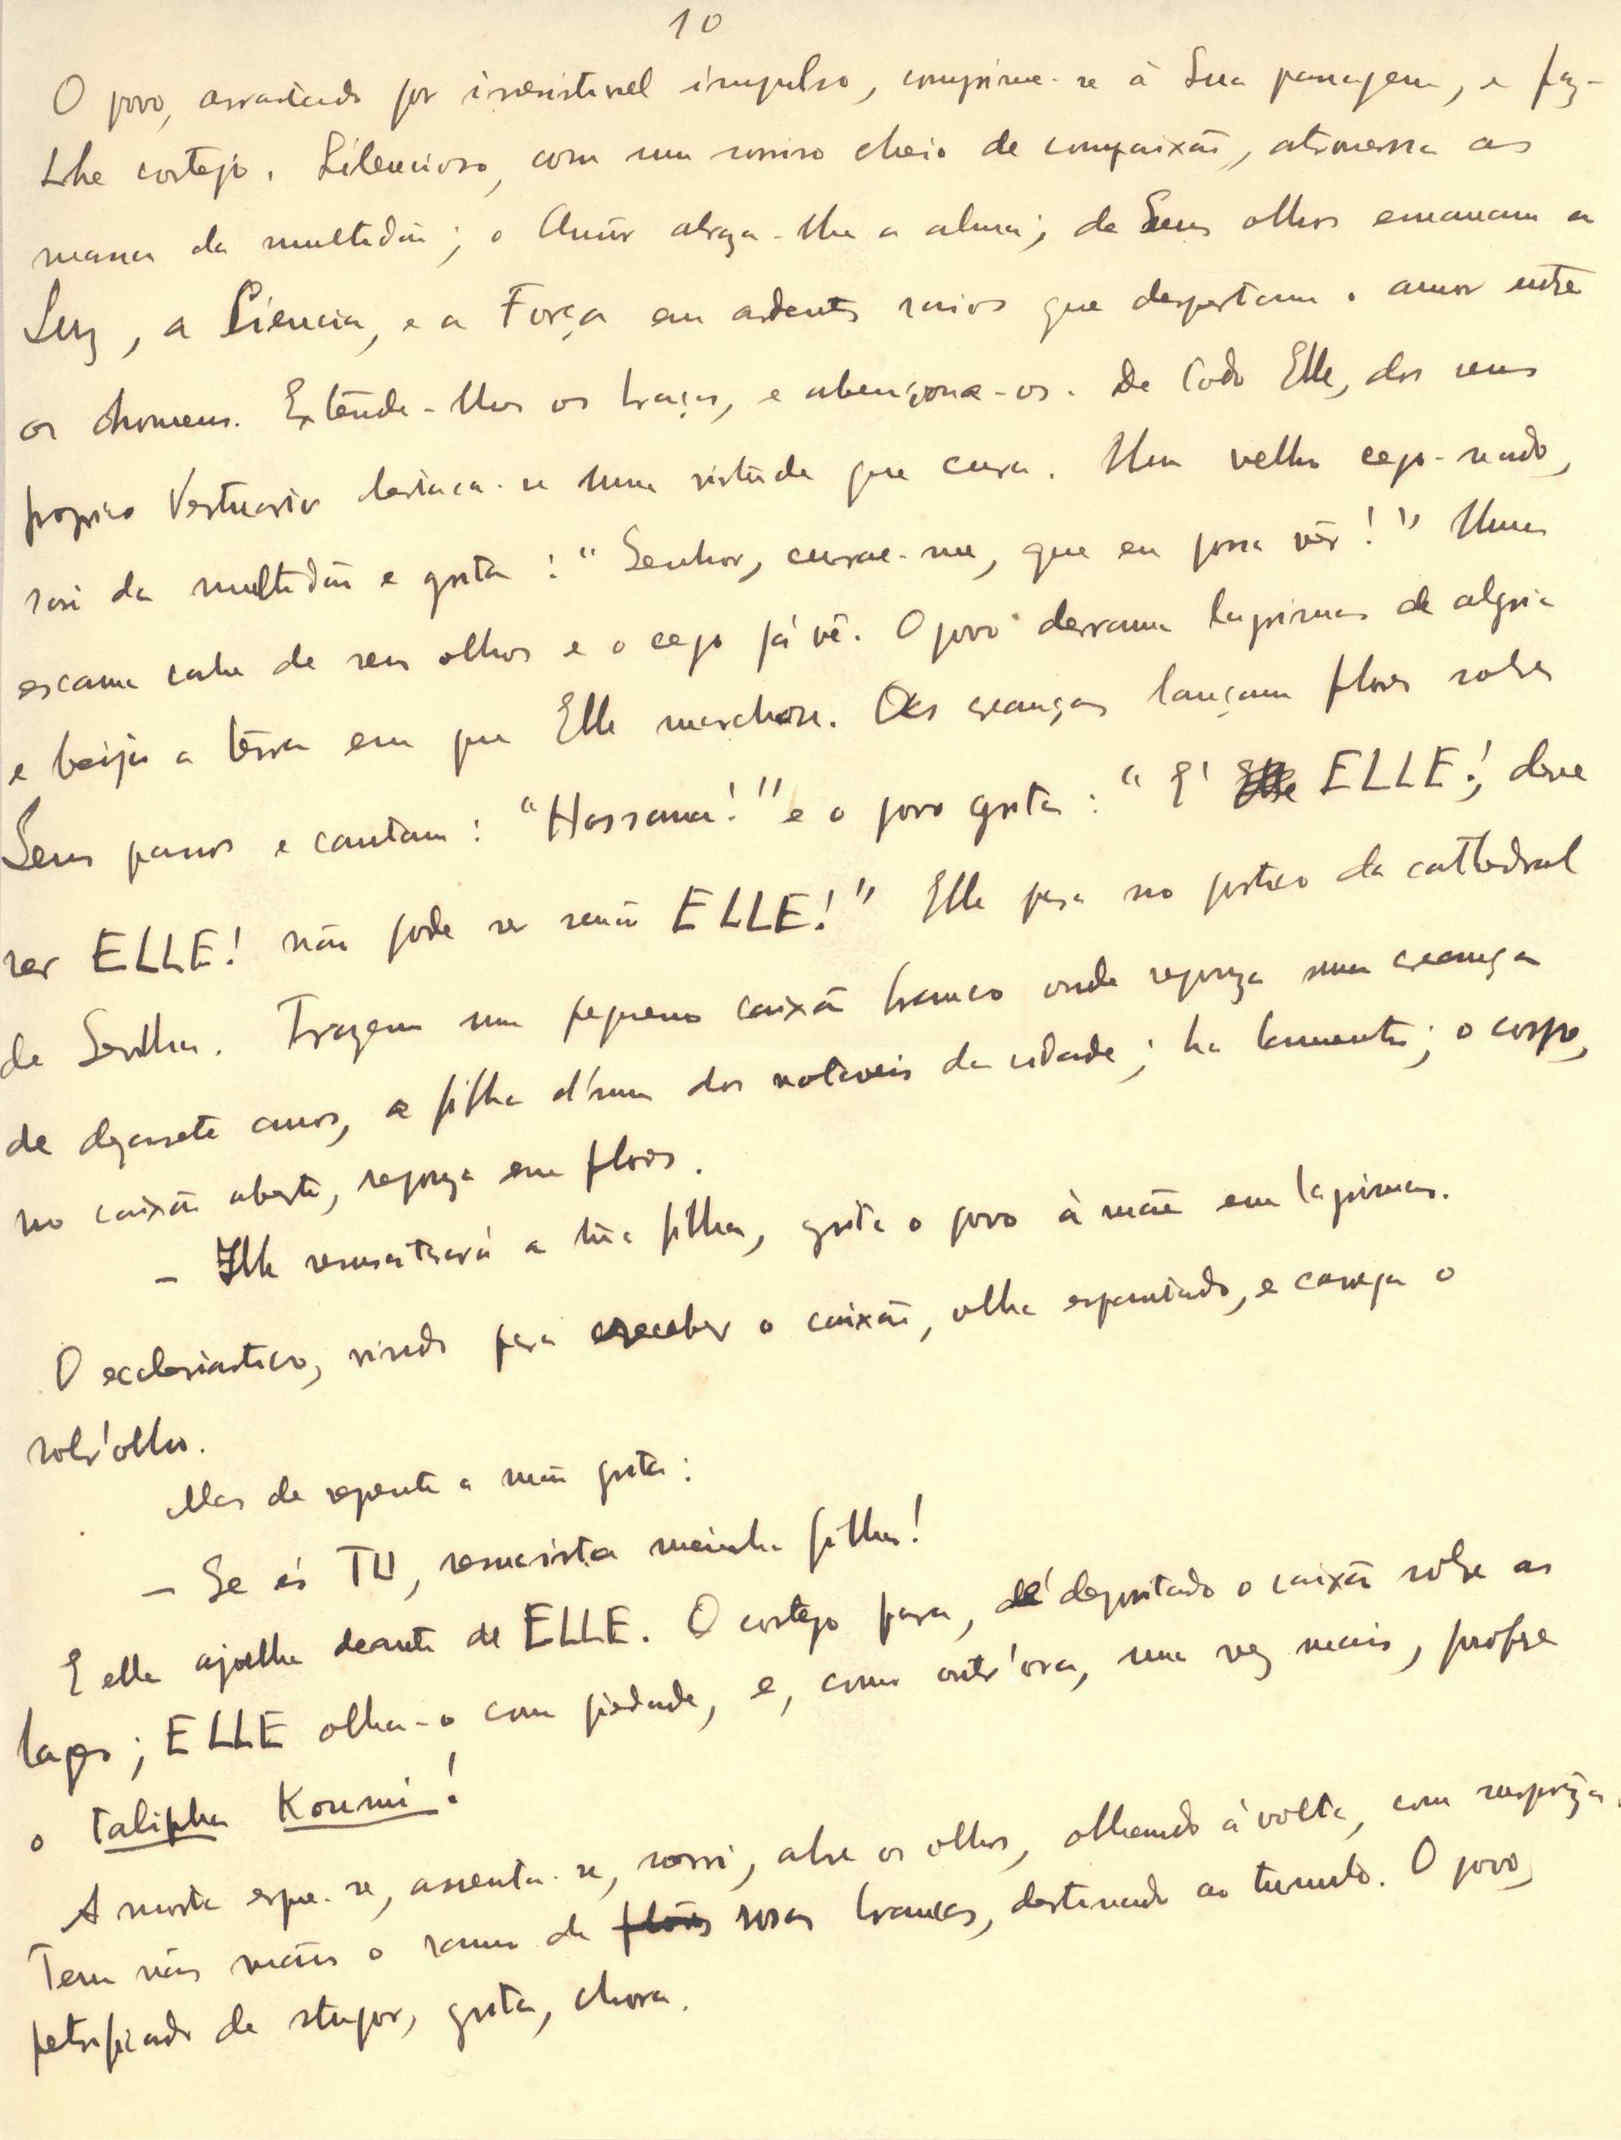 10
O povo, arrastado por irresistivel impulso, comprime-se à Sua passagem, e faz-
Lhe cortejo. Silencioso, com um sorriso cheio de compaixão, atravessa as
massa da multidão; o Amôr abraza-lhe a alma; de Seus olhos emanam a
Luz, a Ciencia, e a Força em ardentes raios que despertam o amor entre
os homens. Extende-lhes os braços, e abençoa-os. De todo Elle, dos seus
proprios Vestuarios destaca-se uma virtude que cura. Um velho cego-nado,
sai da multidão e grita: "Senhor, curae-me, que eu possa vêr!" Uma
escama cahe de seus olhos e o cego já vê. O povo derrama lagrimas de alegria
e beija a terra em que Elle marchou. As creanças lançam flores sobre
Seus passos e cantam: "Hossana!" e o povo grita: "E' Elle ELLE!, deve
ser ELLE! não pode ser senão ELLE!" Elle pára no portico da cathedral
de Sevilha. Trazem um pequeno caixão branco onde repouza uma creança
de dezassete annos, a filha d'um dos notaveis da cidade; ha lamentos; o corpo,
no caixão aberto, repouza em flores.
— Elle ressuscitará a tua filha, grita o povo à mãe em lagrimas.
O ecclesiastico, vindo para receber o caixão, olha espantado, e carrega o
sobr'olho.
Mas de repente a mãe grita:
— Se és TU, resuscita minha filha!
E ella ajoelha deante de ELLE. O cortejo para, é depositado o caixão sobre as
lages; ELLE olha-o com piedade, e, como outr'ora, uma vez mais, profere
o Talipha Koumi!
A morta ergue-se, assenta-se, sorri, abre os olhos, olhando à volta, com surpreza.
Tem nas mãos o ramo de flôres rosas brancas, destinado ao tumulo. O povo,
petrificado de stupor, grita, chora.